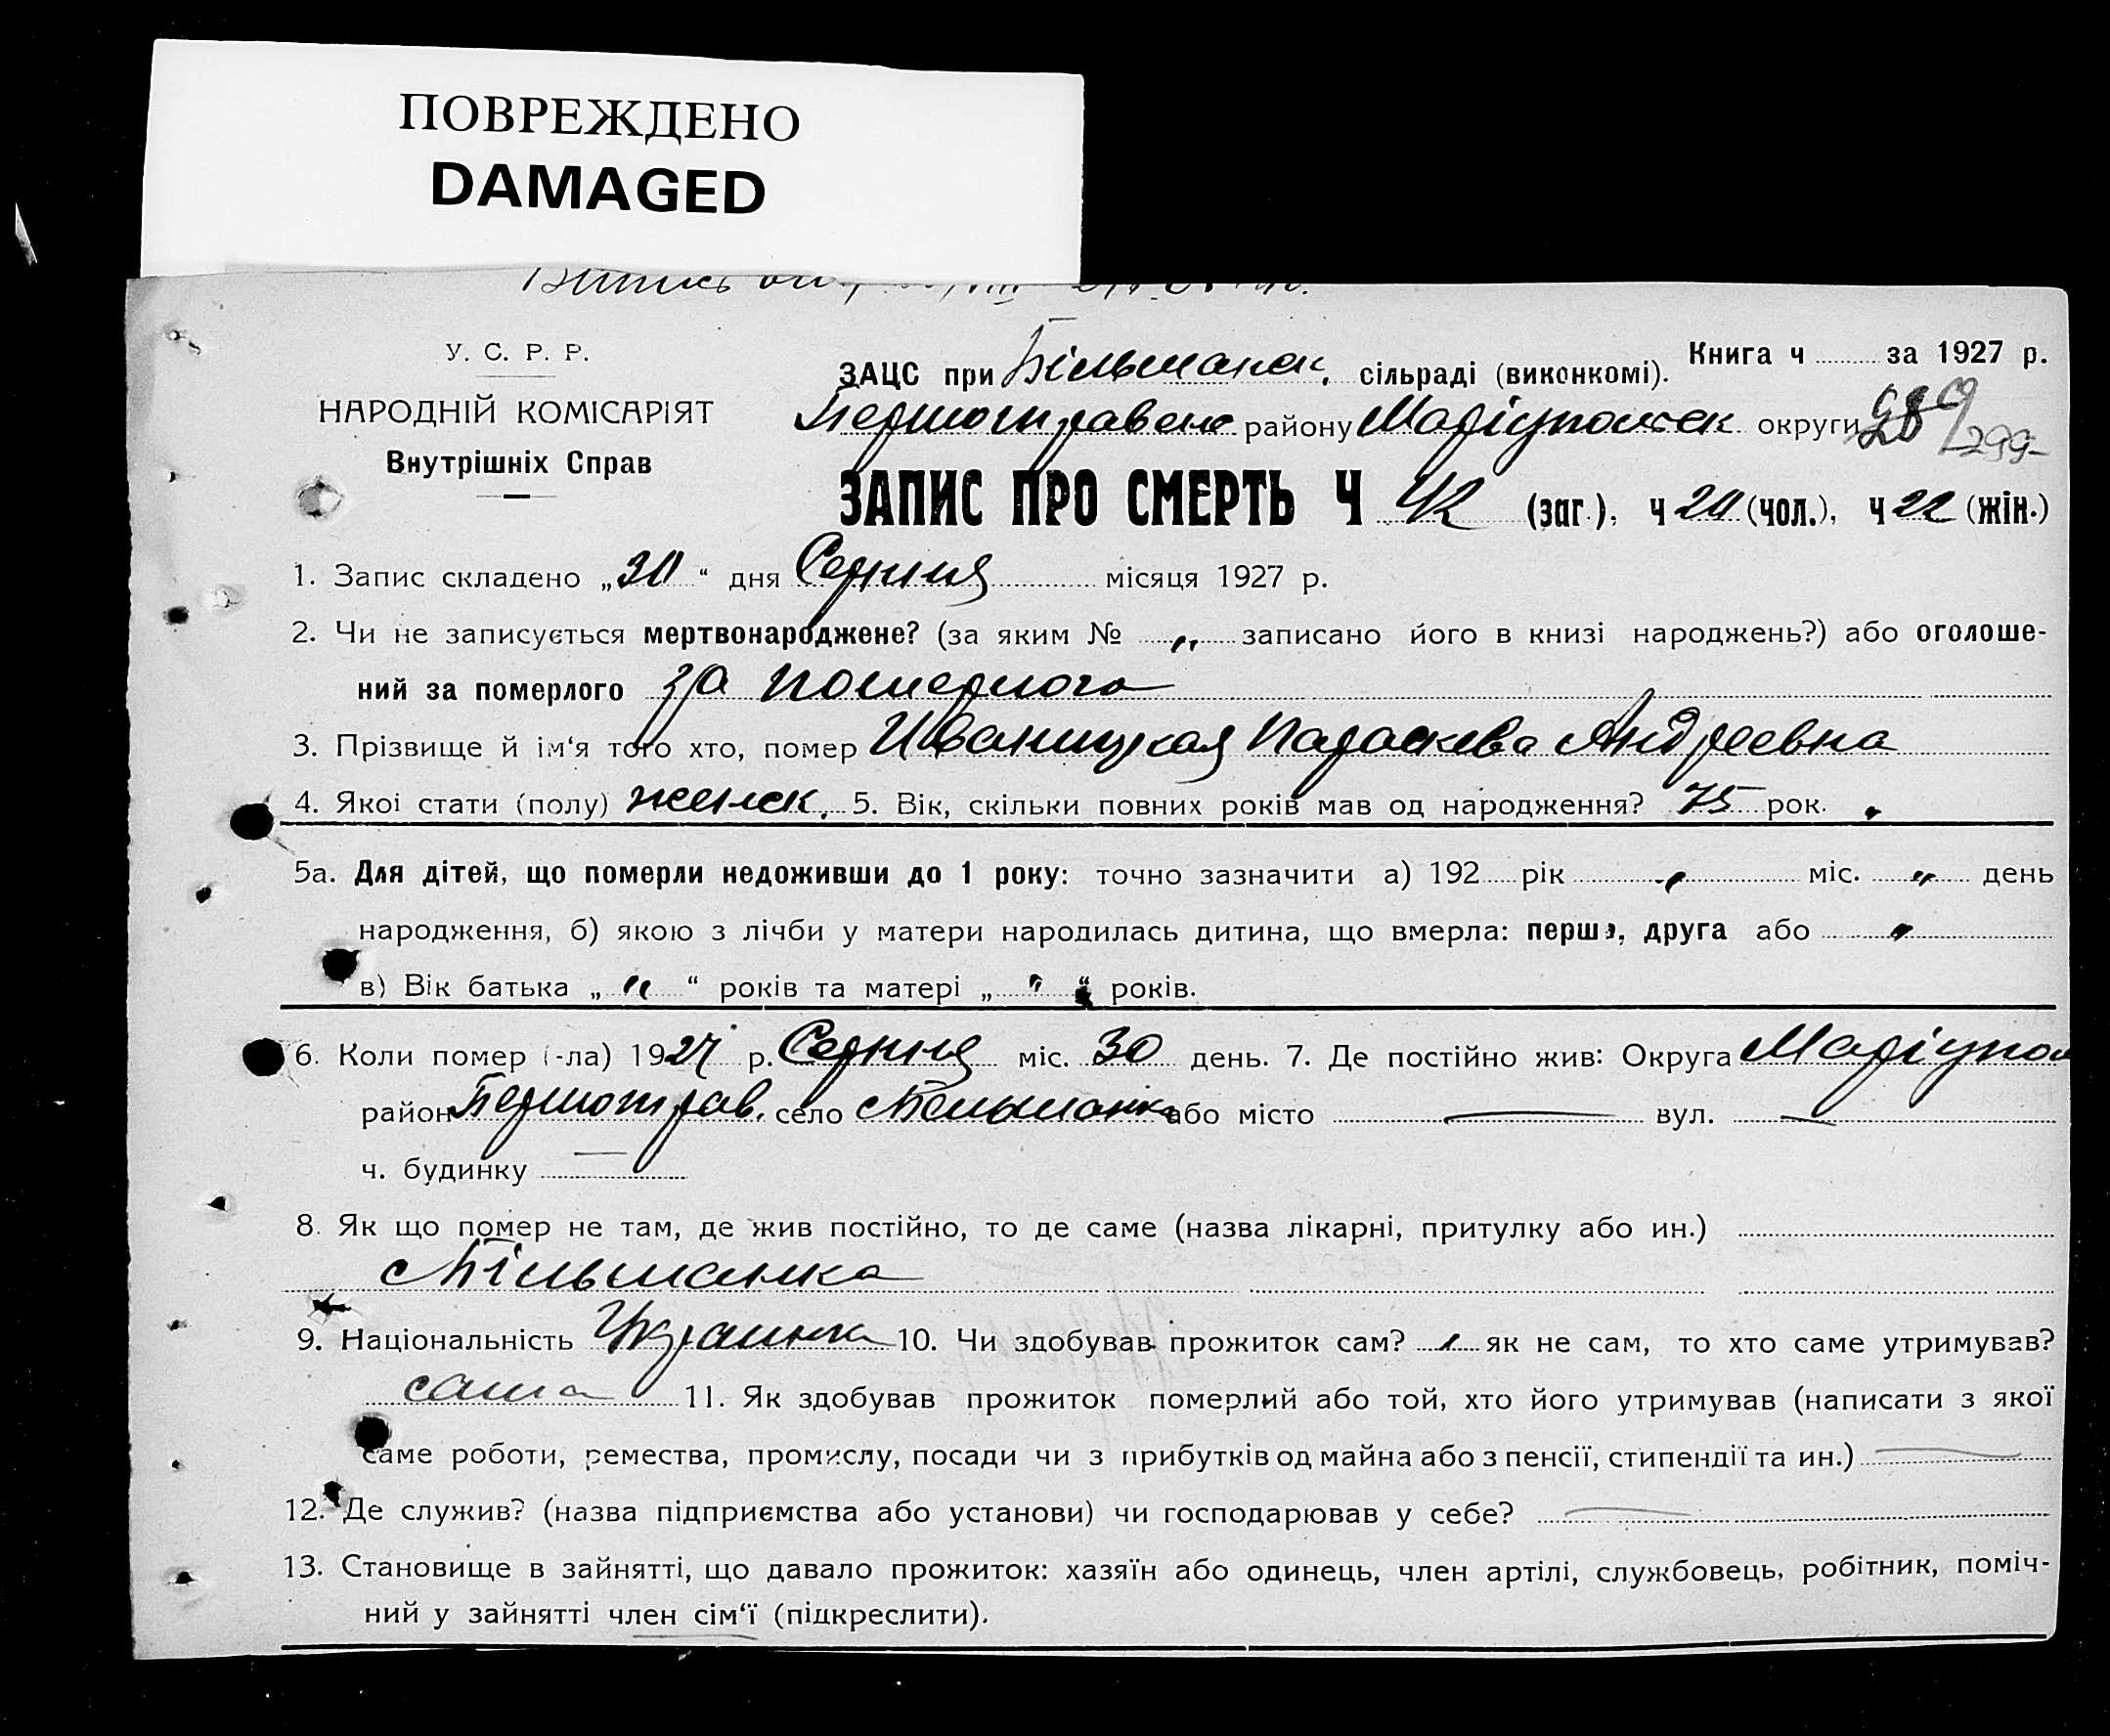 ПОВРЕЖДЕНО
DAMAGED
У. С. Р. Р.
НАРОДНІЙ КОМІСАРІЯТ
Внутрішніх Справ
Книга ч за 1927 р.
ЗАЦС при Більманск. сільраді (виконкомі).
Першотравенс району Маріупольск округи
299
ЗАПИС ПРО СМЕРТЬ Ч 42 (заг.), ч 20 (чол.), ч 22 (жін.)
1. Запис складено „30“ дня Серпня місяця 1927 р.
2. Чи не записується мертвонароджене? (за яким № „ записано його в книзі народжень?) або оголоше-
ний за померлого за померлого
3. Прізвище й ім‘я того хто, помер Иваницкая Параскева Андреевна
4. Якої стати (полу) женск. 5. Вік, скільки повних років мав од народження? 75 рок.
5а. Для дітей, що померли недоживши до 1 року: точно зазначити а) 192 рік „ міс. „ день
народження, б) якою з лічби у матери народилась дитина, що вмерла: перша, друга або „
в) Вік батька „ “ років та матері „ “ років.
6. Коли помер (-ла) 1927 р. Серпня міс. 30 день. 7. Де постійно жив: Округа Маріупол
район Першотрав. село Більманка або місто — вул. —
ч. будинку —
8. Як що помер не там, де жив постійно, то де саме (назва лікарні, притулку або ин.)
с Більманка
9. Національність Украинка 10. Чи здобував прожиток сам? „ як не сам, то хто саме утримував?
сама 11. Як здобував прожиток померлий або той, хто його утримував (написати з якої
саме роботи, ремества, промислу, посади чи з прибутків од майна або з пенсії, стипендії та ин.) —
12. Де служив? (назва підприємства або установи) чи господарював у себе? —
13. Становище в зайнятті, що давало прожиток: хазяїн або одинець, член артілі, службовець, робітник, поміч-
ний у зайнятті член сім‘ї (підкреслити).